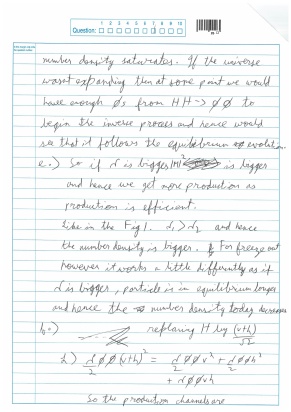 1 2 3 4 5 6 7 8 9 10
Question:
number density saturates. If the universe
wasnt expanding then at some point we would
have enough ϕs from HH -> ϕϕ to
begin the inverse process and hence would
see that it follows the equilibrium evolution.
e.) So if λ is bigger |M|² is bigger
and hence we get more production as
production is efficient.
Like in the Fig 1. λ₁ > λ₂ and hence
the number density is bigger. For freeze out
however it works a little differently as if
λ is bigger, particle is in equilibrium longer
and hence the number density today decreases
h.) replacing H by (v+h)/√2
L) λ/2 ϕϕ (v+h)² = λ/2 ϕϕv² + λ/2 ϕϕh²
+ λϕϕvh
So the production channels are